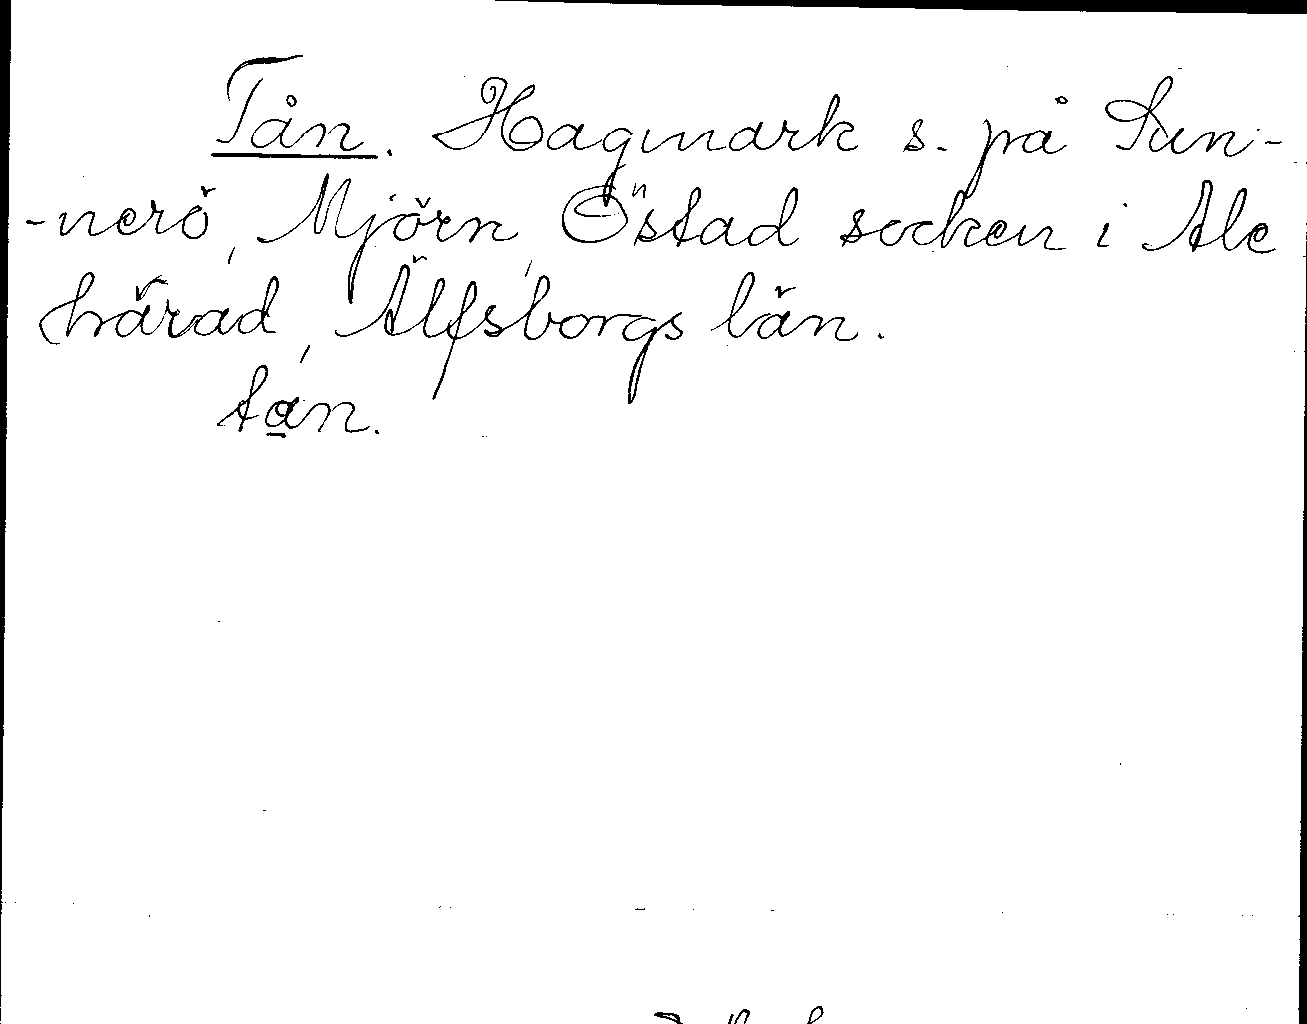 Tån. Hagmark s. på Sun-
-nerö, Mjörn, Östad socken i Ale
härad, Älfsborgs län.
tan.